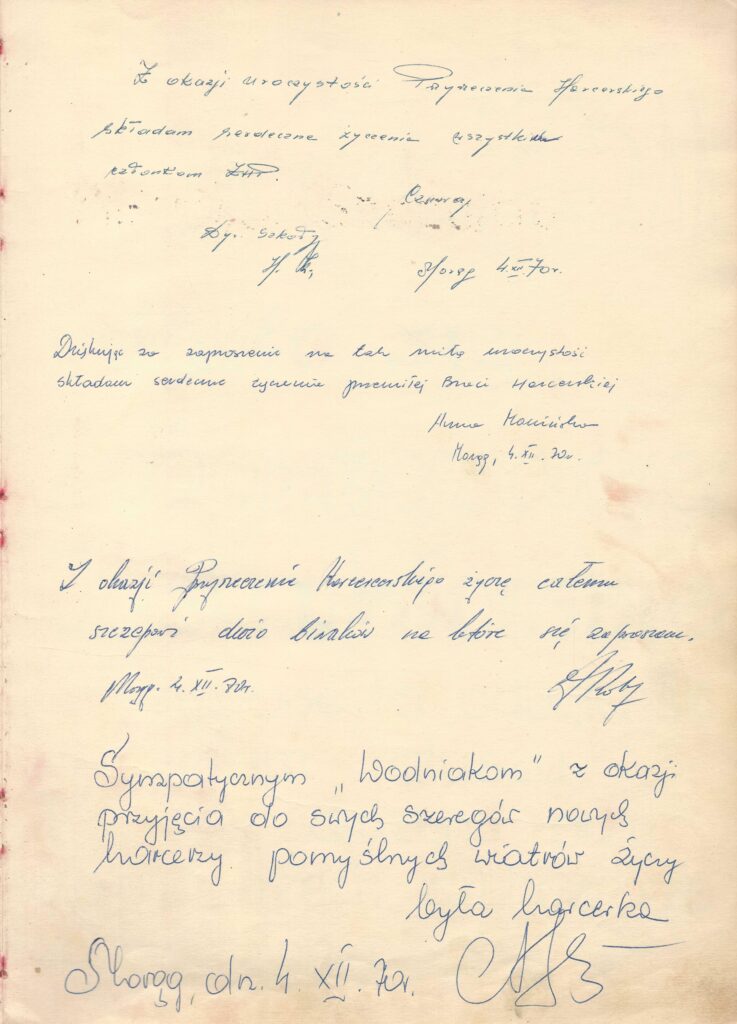 Z okazji uroczystości Przyrzeczenia Harcerskiego
składam serdeczne życzenia wszystkim
członkom ZHP.
Czuwaj
Dyr. Szkoły
Morąg 4.XII.70r.
Dziękując za zaproszenie na tak miłą uroczystość
składam serdeczne życzenia przemiłej Braci Harcerskiej
Anna
Morąg, 4.XII.70r.
Z okazji Przyrzeczenia Harcerskiego życzę całemu
szczepowi dużo biwaków na które się zapraszam.
Morąg. 4.XII.70r.
Sympatycznym „Wodniakom" z okazji
przyjęcia do swych szeregów nowych
harcerzy pomyślnych wiatrów życzy
była harcerka
Morąg, dn. 4.XII.70r.